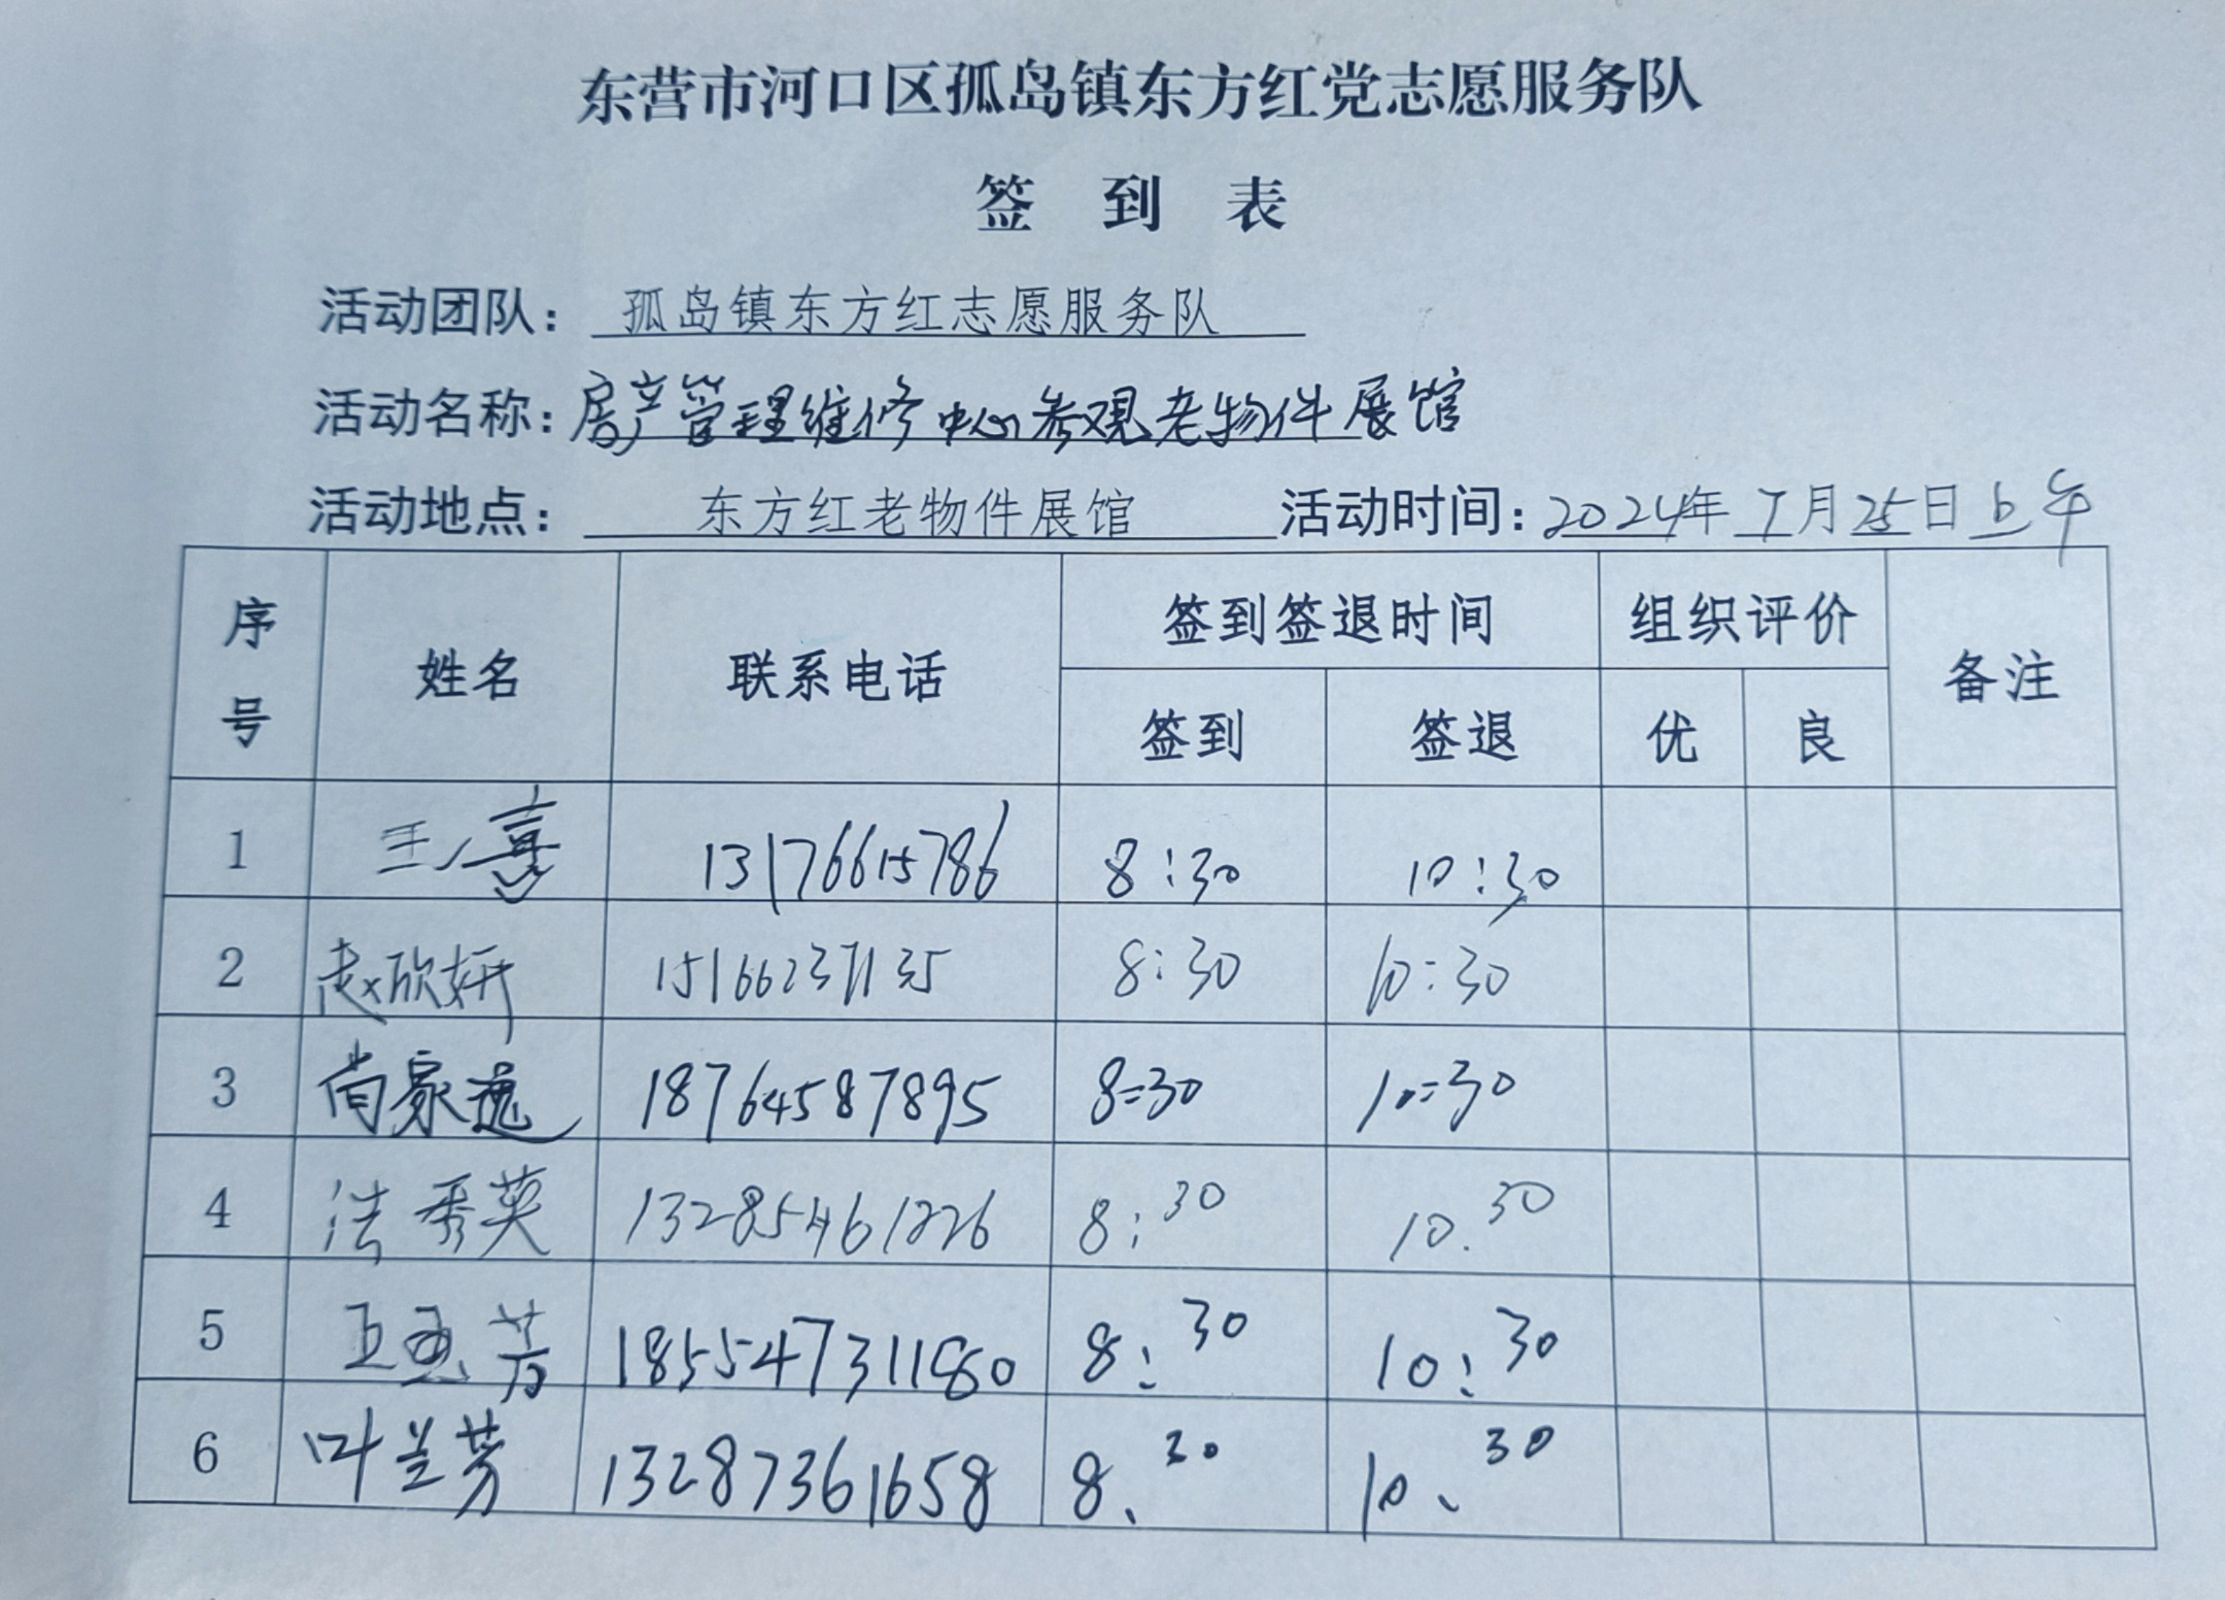 东营市河口区孤岛镇东方红党志愿服务队
签 到 表
活动团队：孤岛镇东方红志愿服务队
活动名称：房产管理维修中心参观老物件展馆
活动地点：东方红老物件展馆 活动时间：2024年7月25日上午
序号 姓名 联系电话 签到签退时间 组织评价 备注
签到 签退 优 良
1 王喜 13176615786 8:30 10:30
2 赵欣妍 15166237135 8:30 10:30
3 尚家逸 18764587895 8:30 10:30
4 法秀英 13285461226 8:30 10.30
5 王 芳 18554731180 8:30 10:30
6 叶兰芳 13287361658 8、30 10、30